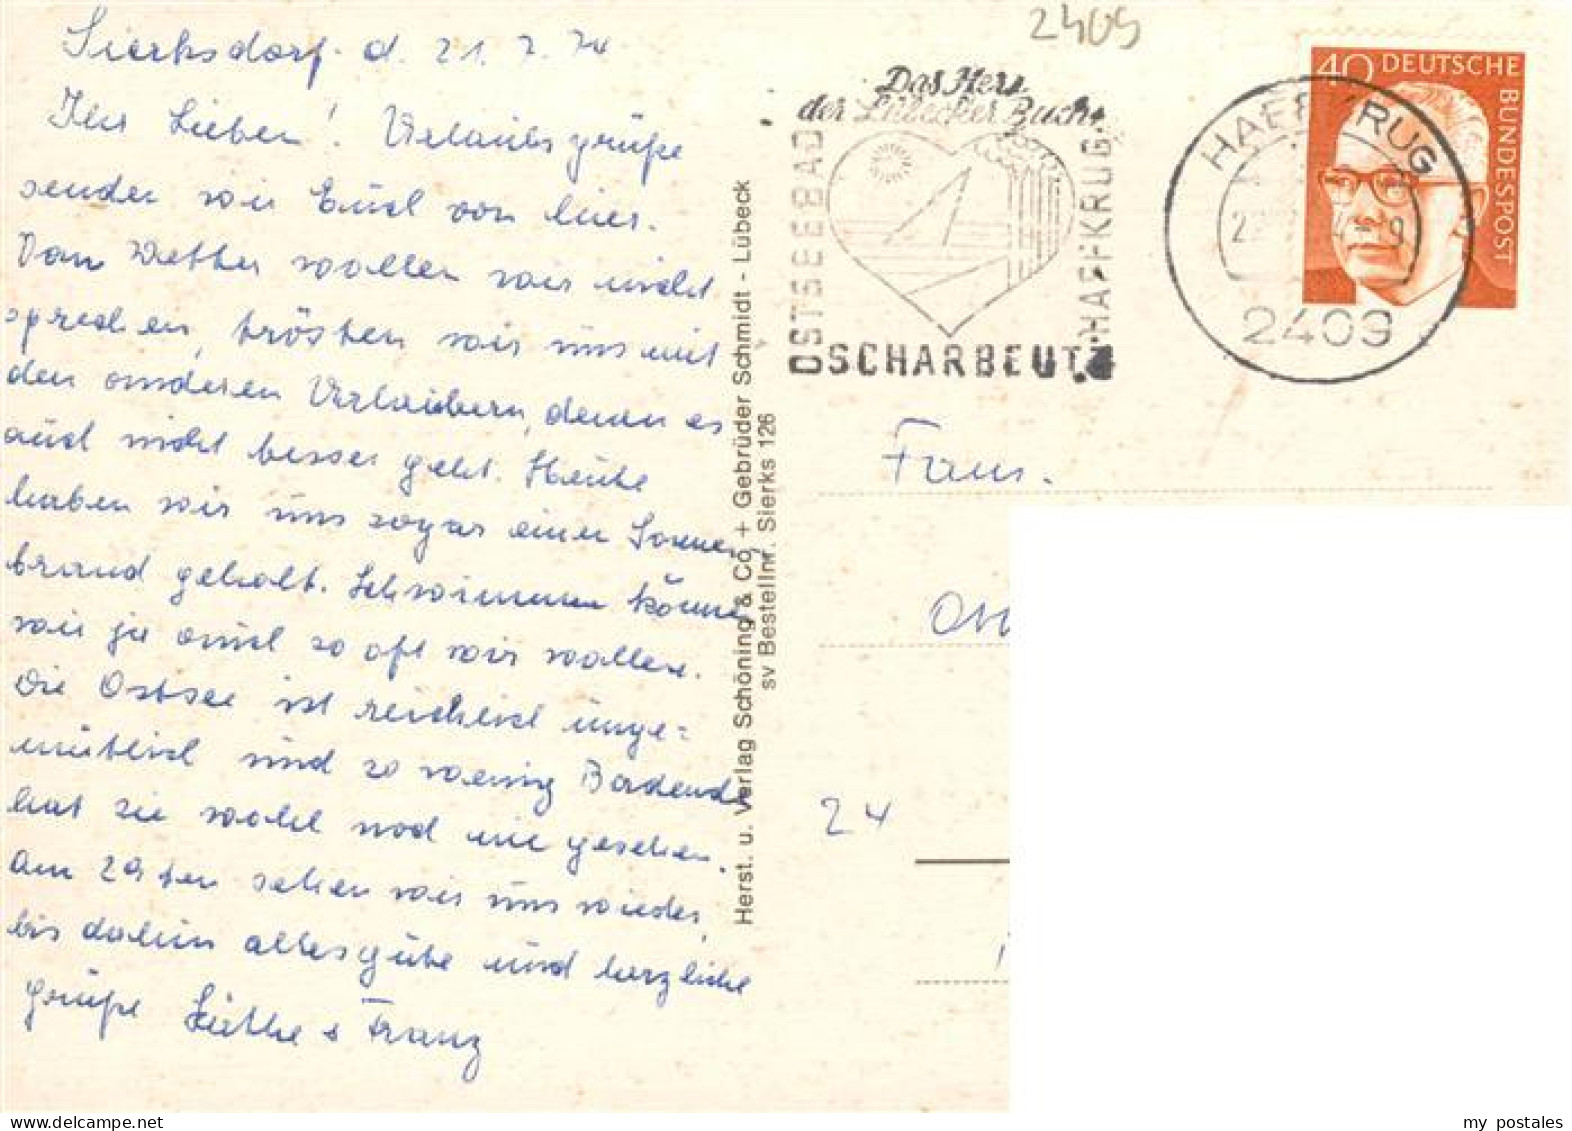 Sierksdorf. d. 21.7.74
Ihr Lieben! Urlaubsgrüße
senden wir Euch von hier.
Vom Wetter wollen wir nicht
sprechen, trösten wir uns mit
den anderen Urlaubern, denen es
auch nicht besser geht. Heute
haben wir uns sogar einen Sonnen
brand geholt. Schwimmen können
wir ja auch so oft wir wollen.
Die Ostsee ist reichlich unge=
mütlich und so wenig Badende
hat sie wohl noch nie gesehen.
Am 29ten sehen wir uns wieder,
bis dahin alles gute und herzliche
grüße Käthe & Franz
Herst. u. Verlag Schöning & Co. + Gebrüder Schmidt - Lübeck
sv Bestellnr. Sierks 126
2409
Das Herz
der Lübecker Bucht
OSTSEEBAD
HAFFKRUG
SCHARBEUTZ
HAFFKRUG
2409
40 DEUTSCHE
BUNDESPOST
Fam.
24
my postales